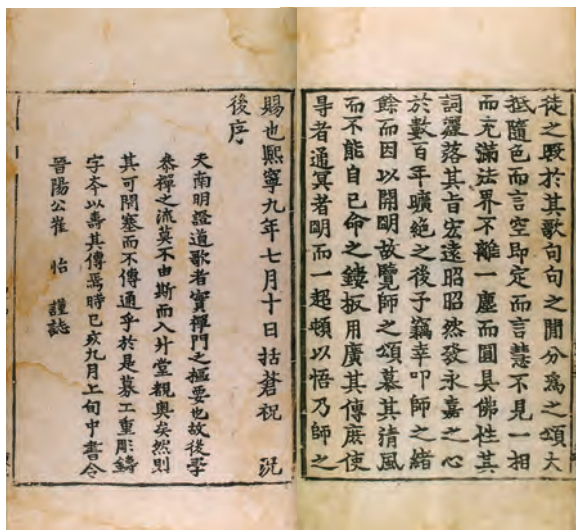 徒之毆於其歌句句之間分爲之頌大
抵隨色而言空即定而言慧不見一相
而充滿法界不離一塵而圓具佛性其
詞灑落其旨宏遠昭昭然發永嘉之心
於數百年曠絶之後予竊幸叩師之緒
餘而因以開明故覽師之頌慕其清風
而不能自已命之鏤板用廣其傳庶使
尋者通冥者明而一超頓以悟乃師之
賜也熙寧九年七月十日括蒼祝 況
後序
夫南明證道歌者實禪門之樞要也故後學
叅禪之流莫不由斯而入升堂覩奧矣然則
其可閉塞而不傳通乎於是募工重彫鑄
字夲以壽其傳焉時己亥九月上旬中書令
晉陽公崔 怡 謹誌